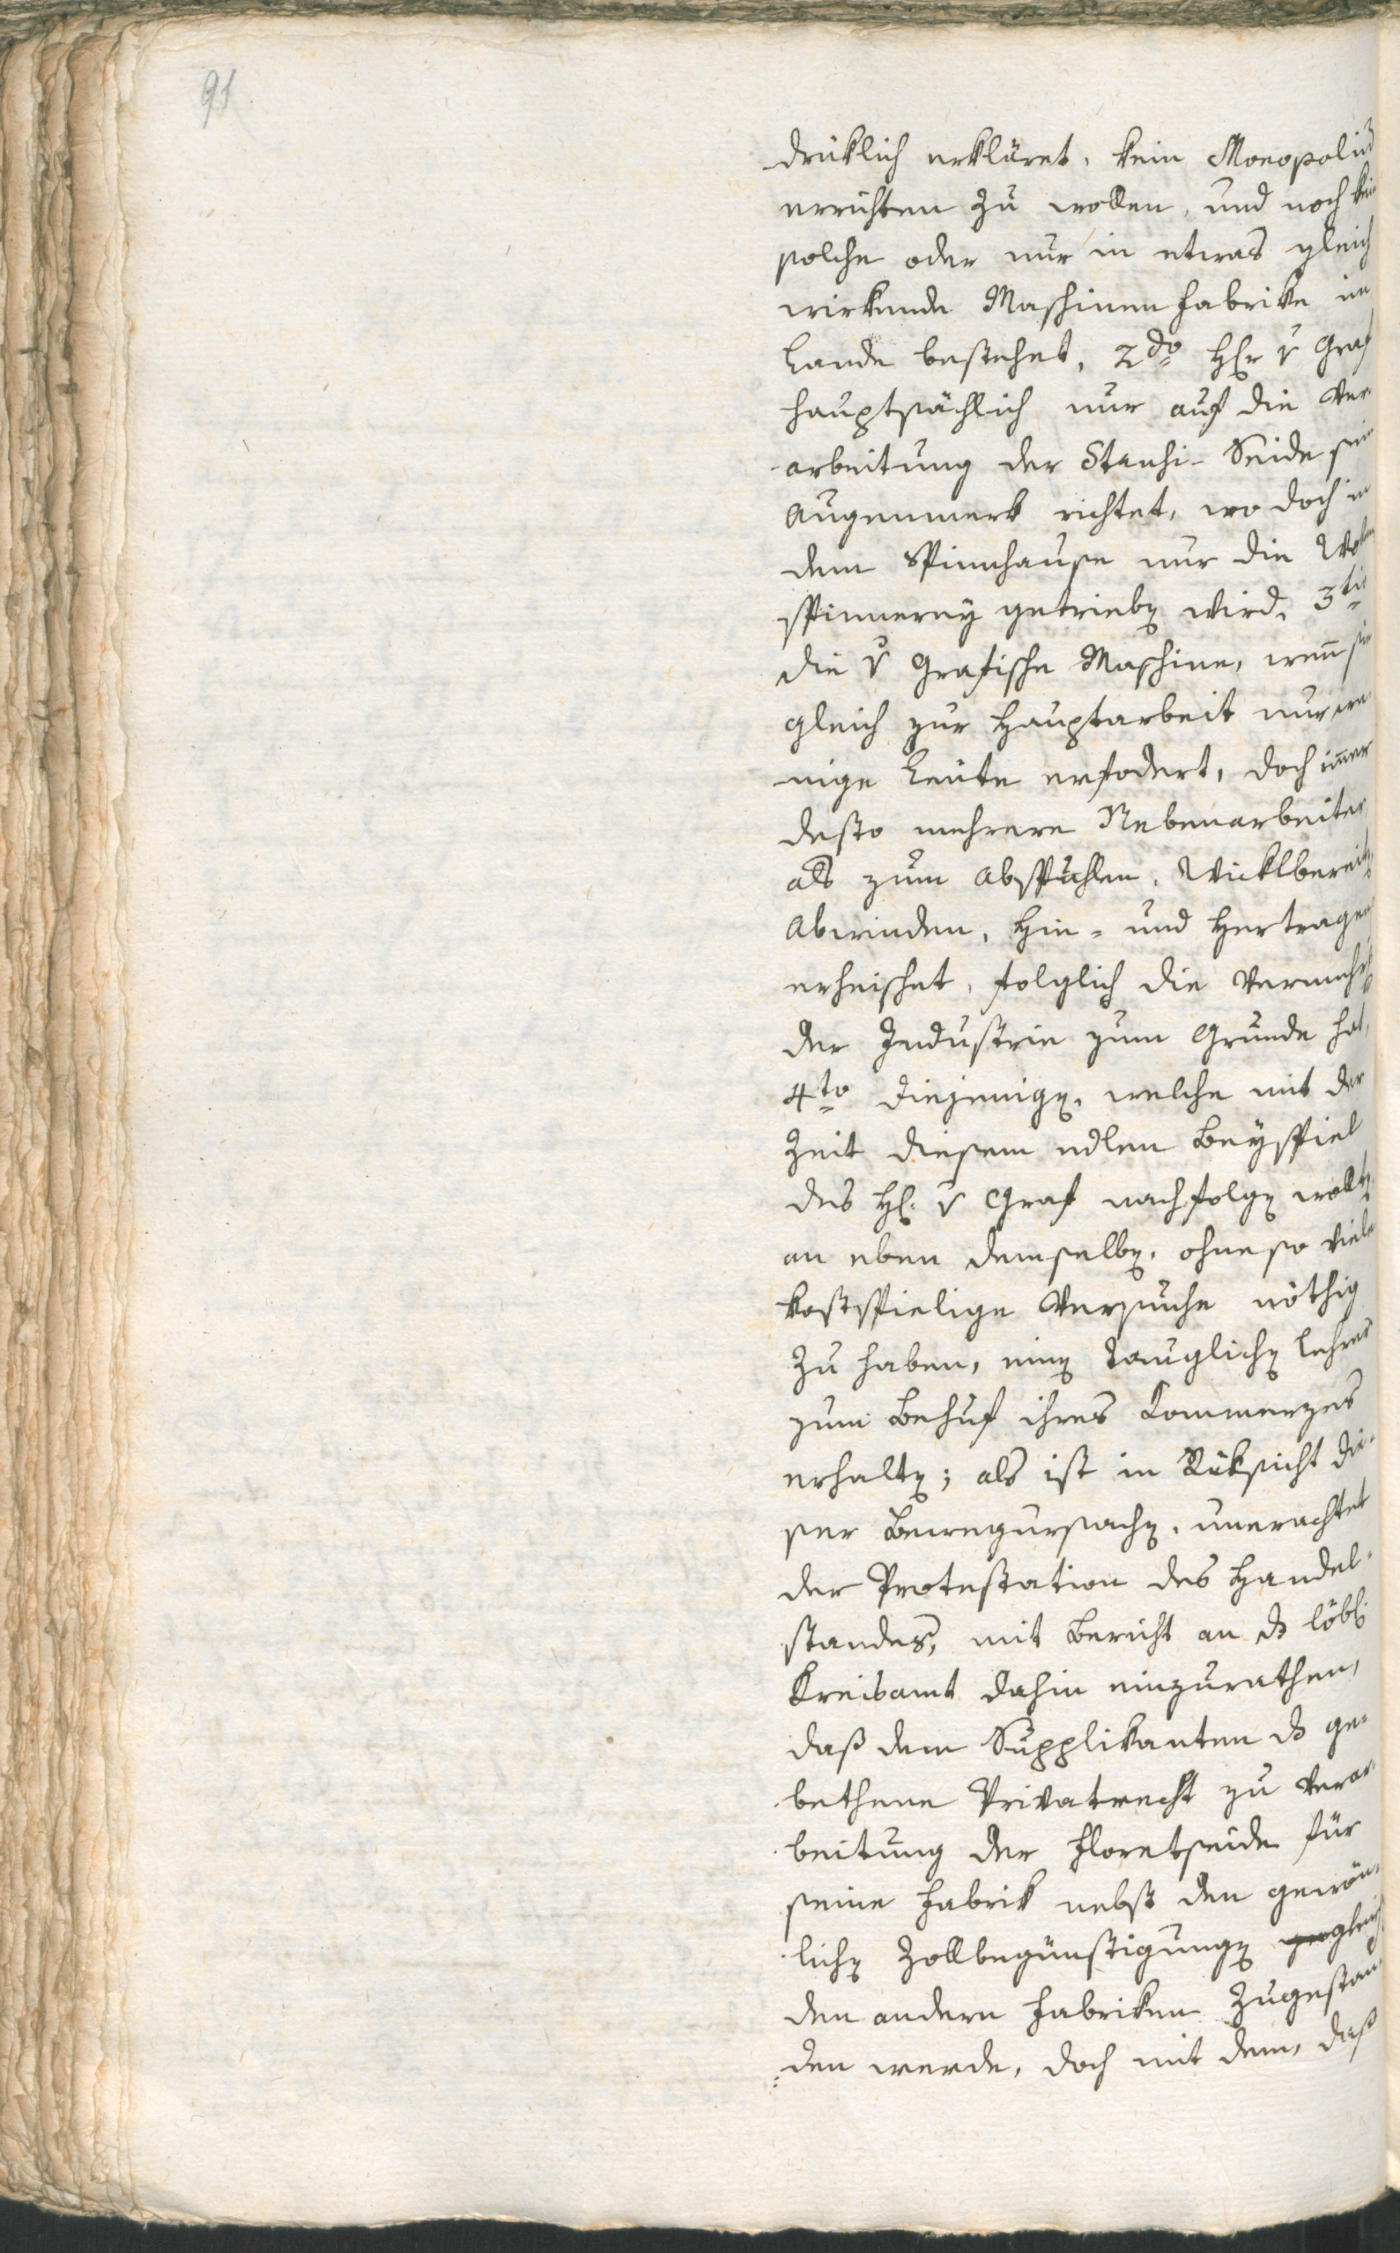 91
drüklich erkläret, kein Monopolium
errichten zu wollen, und noch kein
solche oder nur in etwas gleich
wirkende Maschinen fabrike im
Lande bestehet, 2do Hr v Graf
hauptsächlich nur auf die Ver
arbeitung der Stanhi- Seide sein
Augenmerk richtet, wo doch in
dem Spinnhause nur die Woll
spinnerey getrieben wird. 3tio
die v Grafische Maschine, wenn sie
gleich zur Hauptarbeit nur we
nige Leute erfodert, doch immer
desto mehrere Nebenarbeiter
als zum Abspuhlen, Wicklbereiten
Abwinden, Hin- und Hertragen
erheischet, folglich die Vermehrg
der Industrie zum Grunde hat,
4to diejenigen, welche mit der
Zeit diesem edlen Beyspiel
des H. v Graf nachfolgen wollten
an eben demselben, ohne so viele
kostspielige Versuche nöthig
zu haben, einen tauglichen Lehrer
zum Behuf ihres Kommerzes
erhalten; als ist in Rüksicht die-
ser Bewegursachen, unerachtet
der Protestation des Handel-
standes, mit Bericht an ds löbl.
Kreisamt dahin einzurathen,
daß dem Supplikanten ds ge-
bethene Privatrecht zu Verar
beitung der Floretseide für
seine Fabrik nebst den gewön-
lichen Zollbegünstigungen gleich
den andern Fabriken zugestan
den werde, doch mit dem, daß